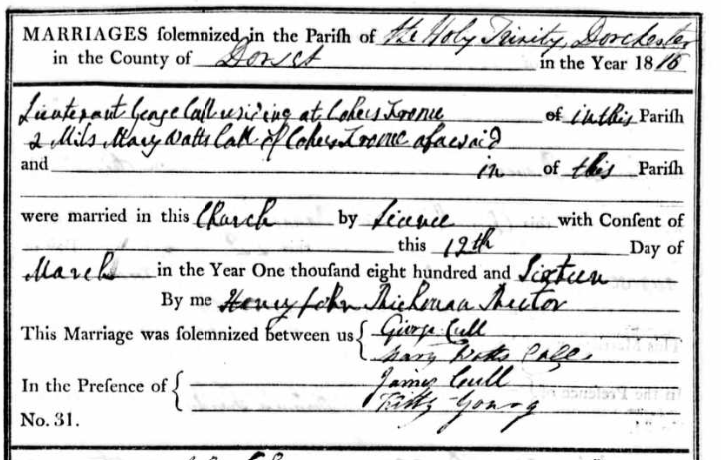 MARRIAGES solemnized in the Parish of the Holy Trinity, Dorchester
in the County of Dorset in the Year 18 16
Lieutenant George Call residing at of in this Parish
Mary Watts Call of
and in of this Parish
were married in this Church by Licence with Consent of
this 12th Day of
March in the Year One thousand eight hundred and Sixteen
By me Henry John Rector
This Marriage was solemnized between us { George Cull
Mary Watts
In the Presence of { James Cull
Kitty Young
No. 31.